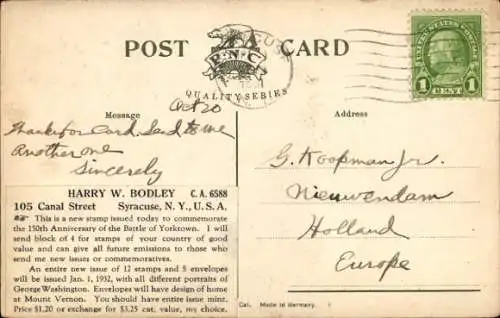 POST CARD
P N C
QUALITY SERIES
UNITED STATES POSTAGE
1 1
CENT
Message
Address
Oct 20
Thanks for Card. Send to me
Another one
Sincerely
G. Koopman Jr.
Nieuwendam
Holland
Europe
HARRY W. BODLEY C. A. 6588
105 Canal Street Syracuse, N. Y., U. S. A.
This is a new stamp issued today to commemorate
the 150th Anniversary of the Battle of Yorktown. I will
send block of 4 for stamps of your country of good
value and can give all future emissions to those who
send me new issues or commemoratives.
An entire new issue of 12 stamps and 5 envelopes
will be issued Jan. 1, 1932, with all different portraits of
George Washington. Envelopes will have design of home
at Mount Vernon. You should have entire issue mint.
Price $1.20 or exchange for $3.25 cat. value, my choice.
Cal. Made in Germany.